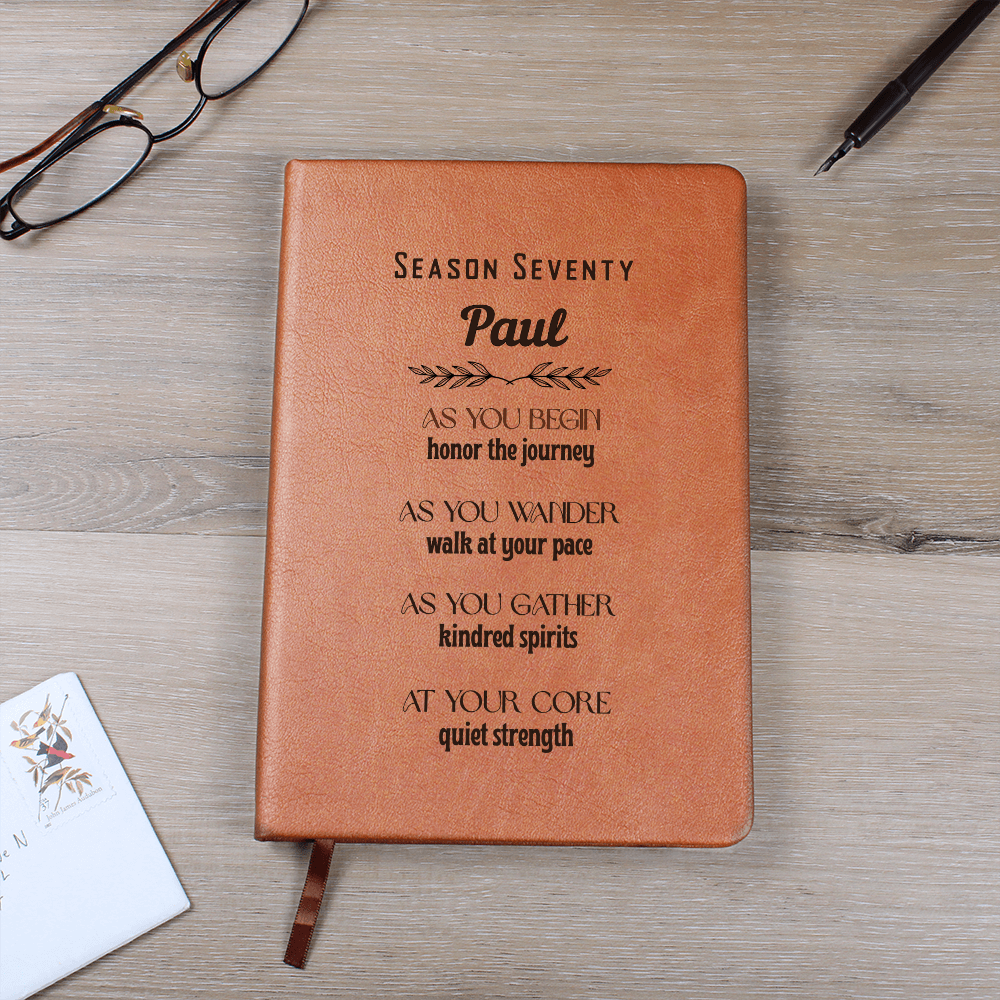 Season Seventy
Paul
AS YOU BEGIN
honor the journey
AS YOU WANDER
walk at your pace
AS YOU GATHER
kindred spirits
AT YOUR CORE
quiet strength
37
John James Audubon